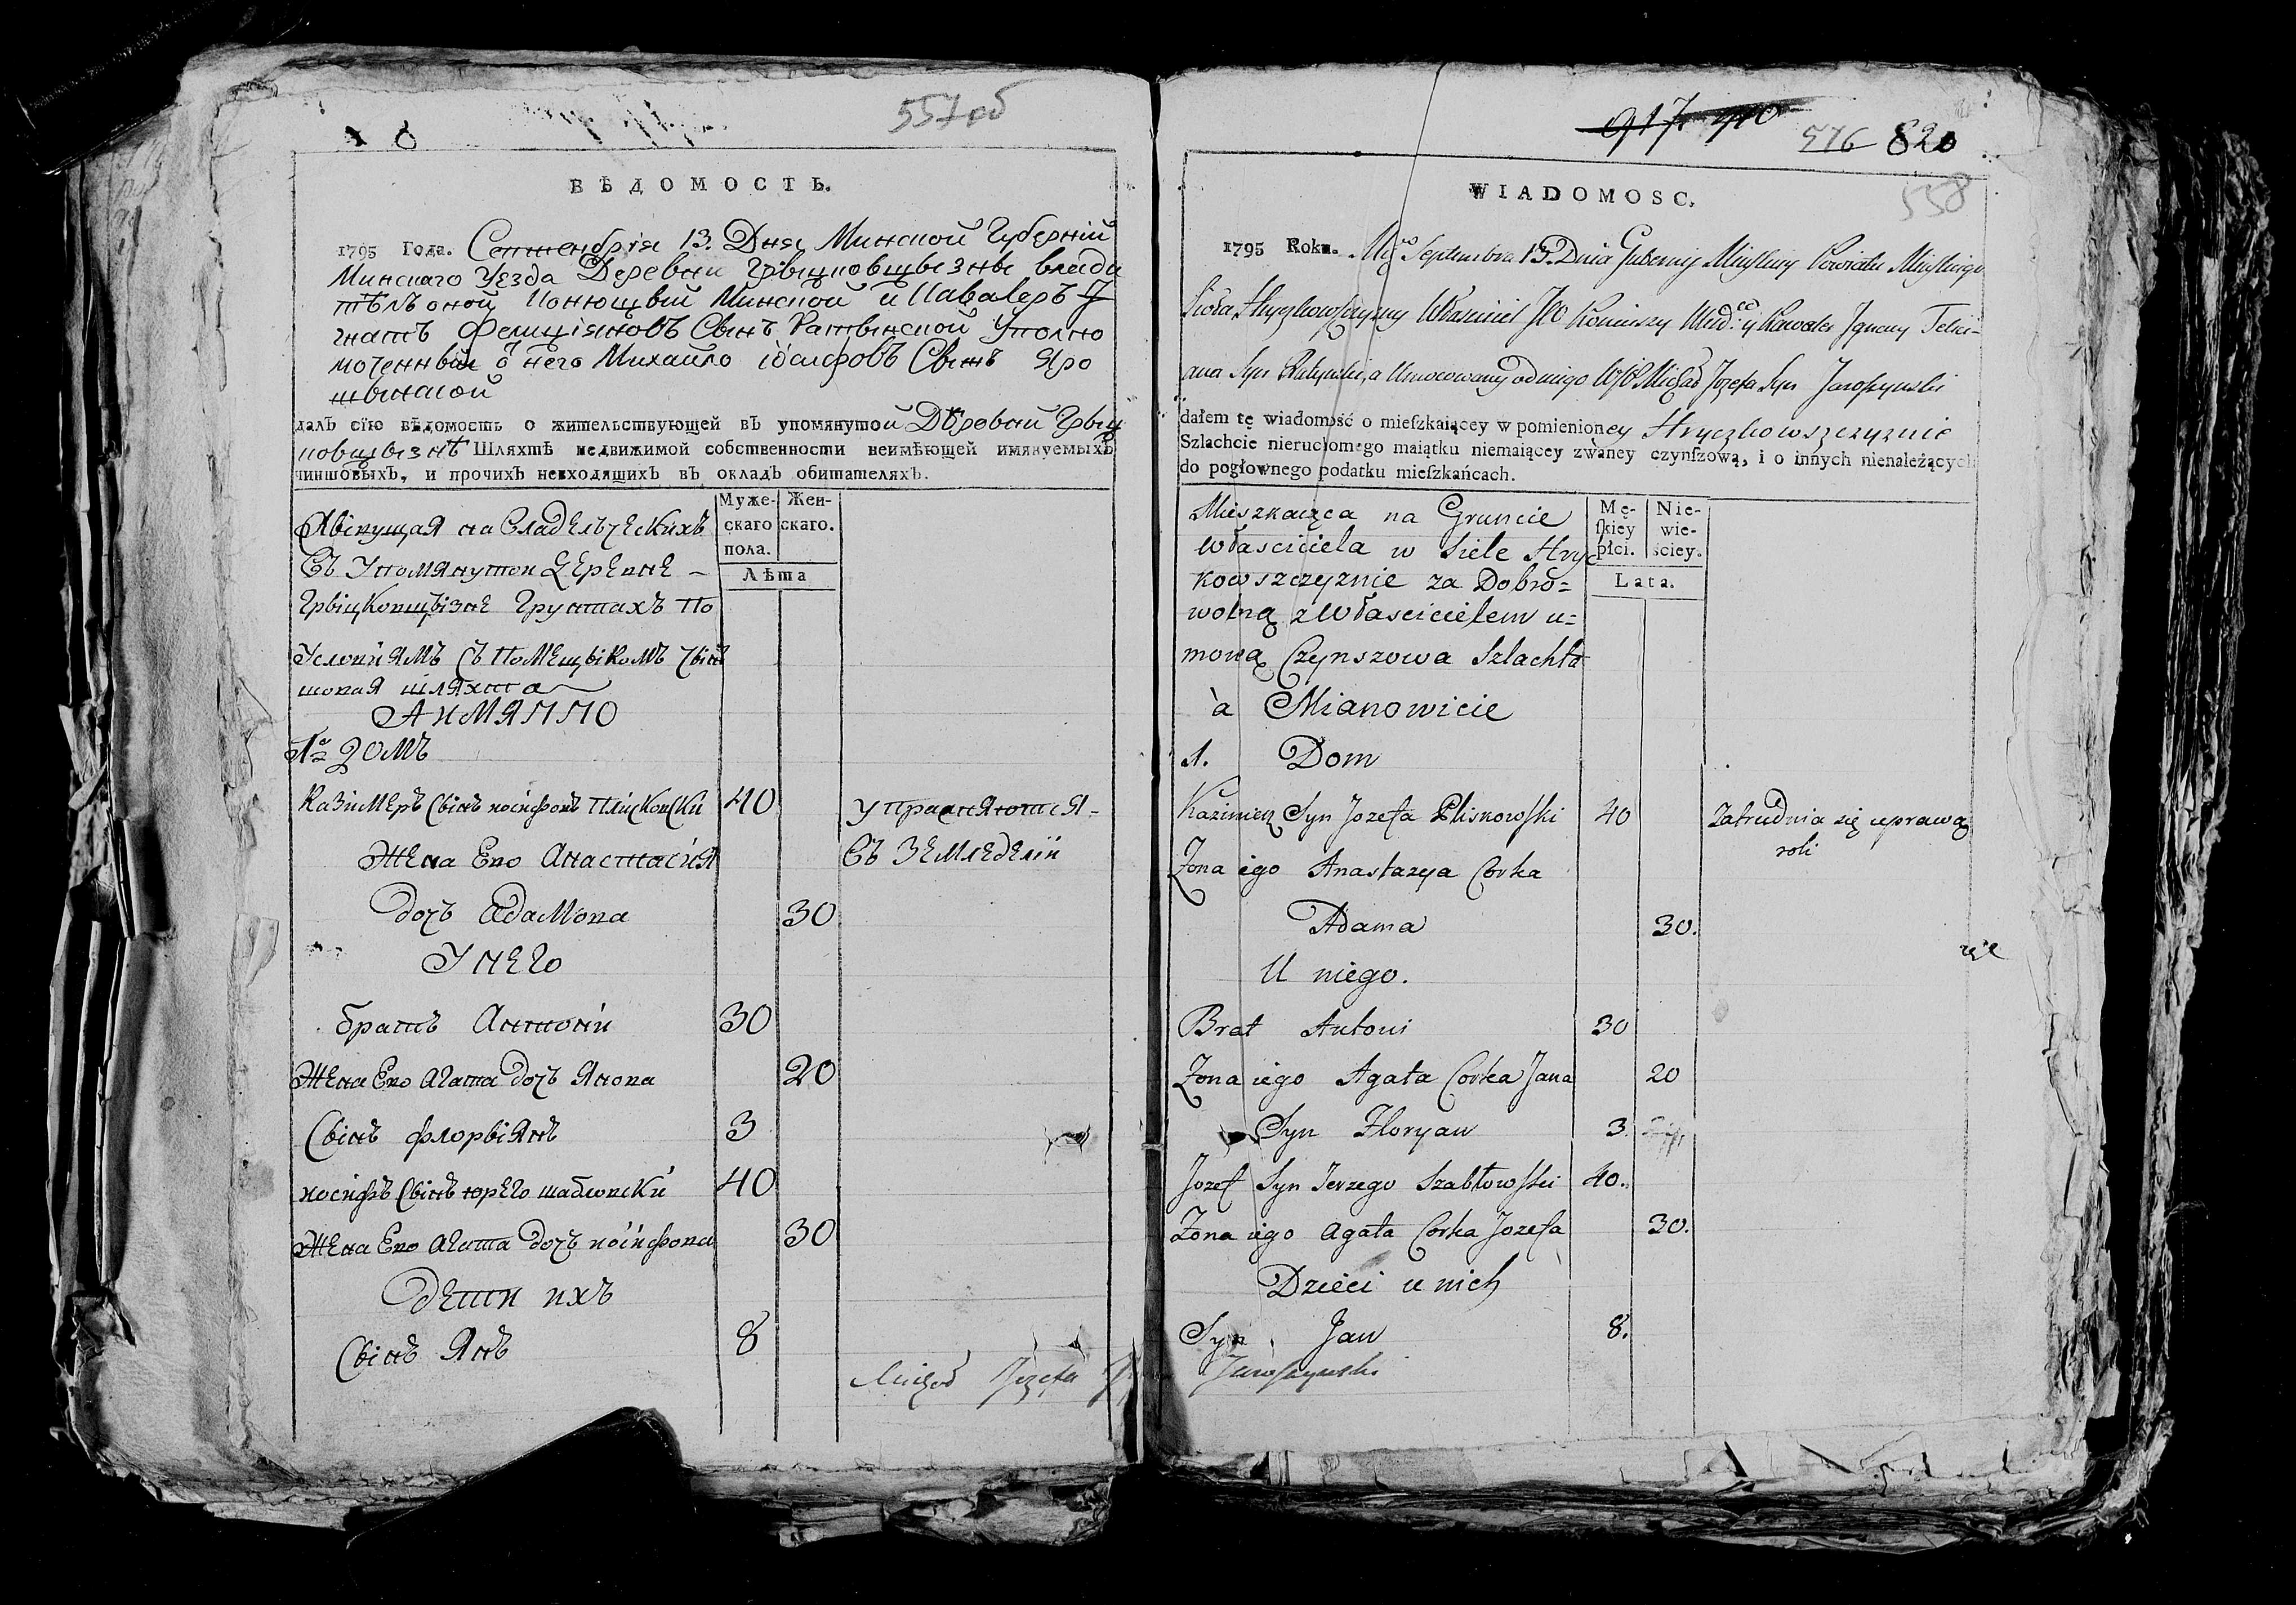 557 об
ВѢДОМОСТЬ.
1795 Года. Сентенбрія 13. Дня, Минской Губерніи
Минскаго Уезда Деревни Грыцковщызны влади
тѣлъ оной Конюшый Минской и Кавалеръ И
гнатъ Фелиціяновъ Сынъ Ратынской Уполно
моченный о него Михайло Іосифовъ Сынъ Яро
шынской
далъ сїю вѣдомость о жительствующей въ упомянутой Деревни Грыц
ковщызнѣ Шляхтѣ недвижимой собственности неимѣющей имянуемыхъ
чиншовыхъ, и прочихъ невходящихъ въ окладъ обитателяхъ.
Муже-скаго пола. Жен-скаго.
Лѣта
Жывущая на Владельческихъ
Въ Упомянутои Деревне
Грыцковщызне Грунтахъ По
Условиямъ Съ Помещыкомъ Чын
шовая шляхта
А имянно
1е Домъ
Казимеръ Сынъ иосифовъ Плиско́вски 40 упражняются
Жена Ево Анастасия Въ Земледеліи
дочъ Адамова 30
У него
братъ Антони 30
Жена Ево Агата дочъ Янова 20
Сынъ флорыянъ 3
иосифъ Сынъ юрего шабловски 40
Жена Ево Агата дочъ иосифова 30
дети ихъ
Сынъ Янъ 8
Michał Jozefa
917 410
576 820
558
WIADOMOSC.
1795 Roku. Mca Septembra 13. Dnia Gubernij Minskiey Powiatu Minskiego
Sioła Hryckowszczyzny Własciciel JW Koniuszy Minski y Kawaler Jgnacy Felici-
ana Syn Ratynski, a Umocowany od niego Michał Jozefa Syn Jaroszynski
dałem tę wiadomość o mieſzkaiącey w pomienioney Hryczkowszczyznie
Szlachcie nieruchomego maiątku niemaiącey zwáney czynſzową, i o innych nienależących
do pogłownego podatku mieſzkańcach.
Mę-ſkiey płci. Nie-wie-ściey.
Lata.
Mieszkaiąca na Gruncie
Własciciela w Siele Hryc
kowszczyznie za Dobro=
wolną z Włascicielem u=
mową Czynszowa Szlachta
à Mianowicie
1. Dom
Kazimierz Syn Jozefa Pliskowski 40 Zatrudnia się uprawą
roli
Zona iego Anastazya Corka
Adama 30.
U niego.
Brat Antoni 30
Zona iego Agata Corka Jana 20
Syn Floryan 3.
Jozef Syn Jerzego Szabłowski 40.
Zona iego Agata Corka Jozefa 30.
Dzieci u nich
Syn Jan 8.
Jaroszynski